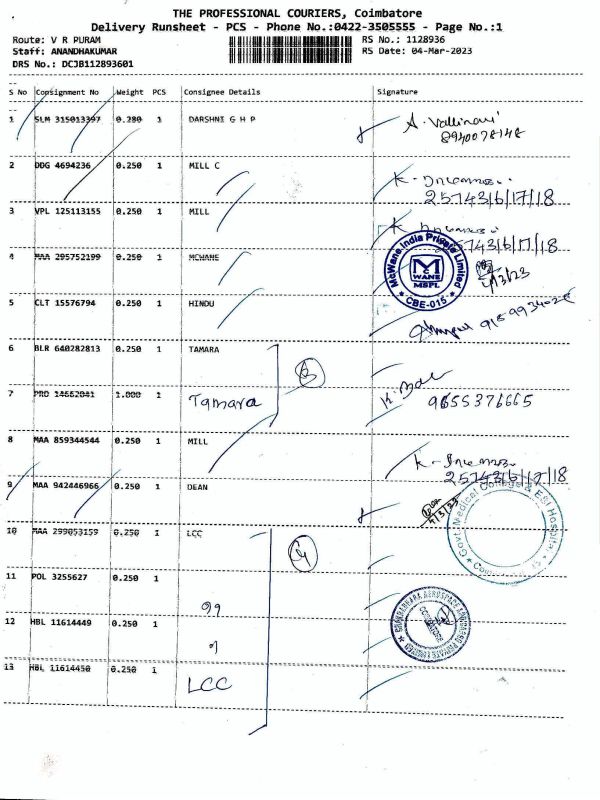 THE PROFESSIONAL COURIERS, Coimbatore
Delivery Runsheet - PCS - Phone No.:0422-3505555 - Page No.:1
Route: V R PURAM RS No.: 1128936
Staff: ANANDHAKUMAR RS Date: 04-Mar-2023
DRS No.: DCJB112893601
S No Consignment No Weight PCS Consignee Details Signature
1 SLM 315013397 0.280 1 DARSHNI G H P
8940078148
2 DDG 4694236 0.250 1 MILL C
257436/17/18
3 VPL 125113155 0.250 1 MILL
257436/17/18
4 MAA 295752199 0.250 1 MCWANE
McWane India Private Limited
MC WANE
MSPL
CBE-015
5 CLT 15576794 0.250 1 HINDU
6 BLR 640282813 0.250 1 TAMARA
7 PRO 14662041 1.000 1 Tamara 9655376665
8 MAA 859344544 0.250 1 MILL
257436/17/18
9 MAA 942446966 0.250 1 DEAN
Govt. Medical College & ESI Hospital
10 MAA 299053159 0.250 1 LCC
11 POL 3255627 0.250 1
12 HBL 11614449 0.250 1
COIMBATORE
13 HBL 11614450 0.250 1 LCC